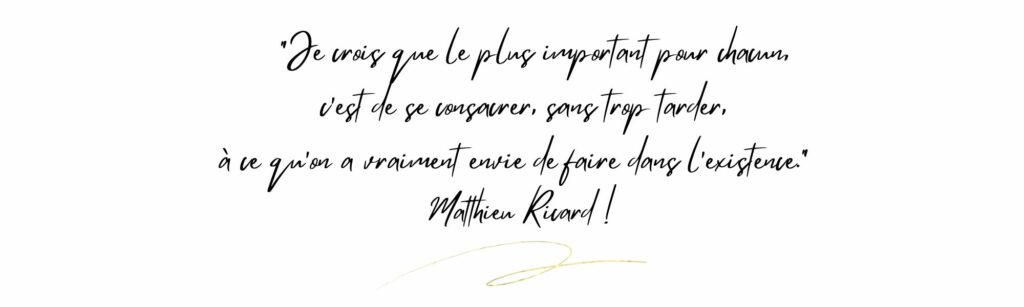 "Je crois que le plus important pour chacun,
c'est de se consacrer, sans trop tarder,
à ce qu'on a vraiment envie de faire dans l'existence."
Matthieu Ricard !